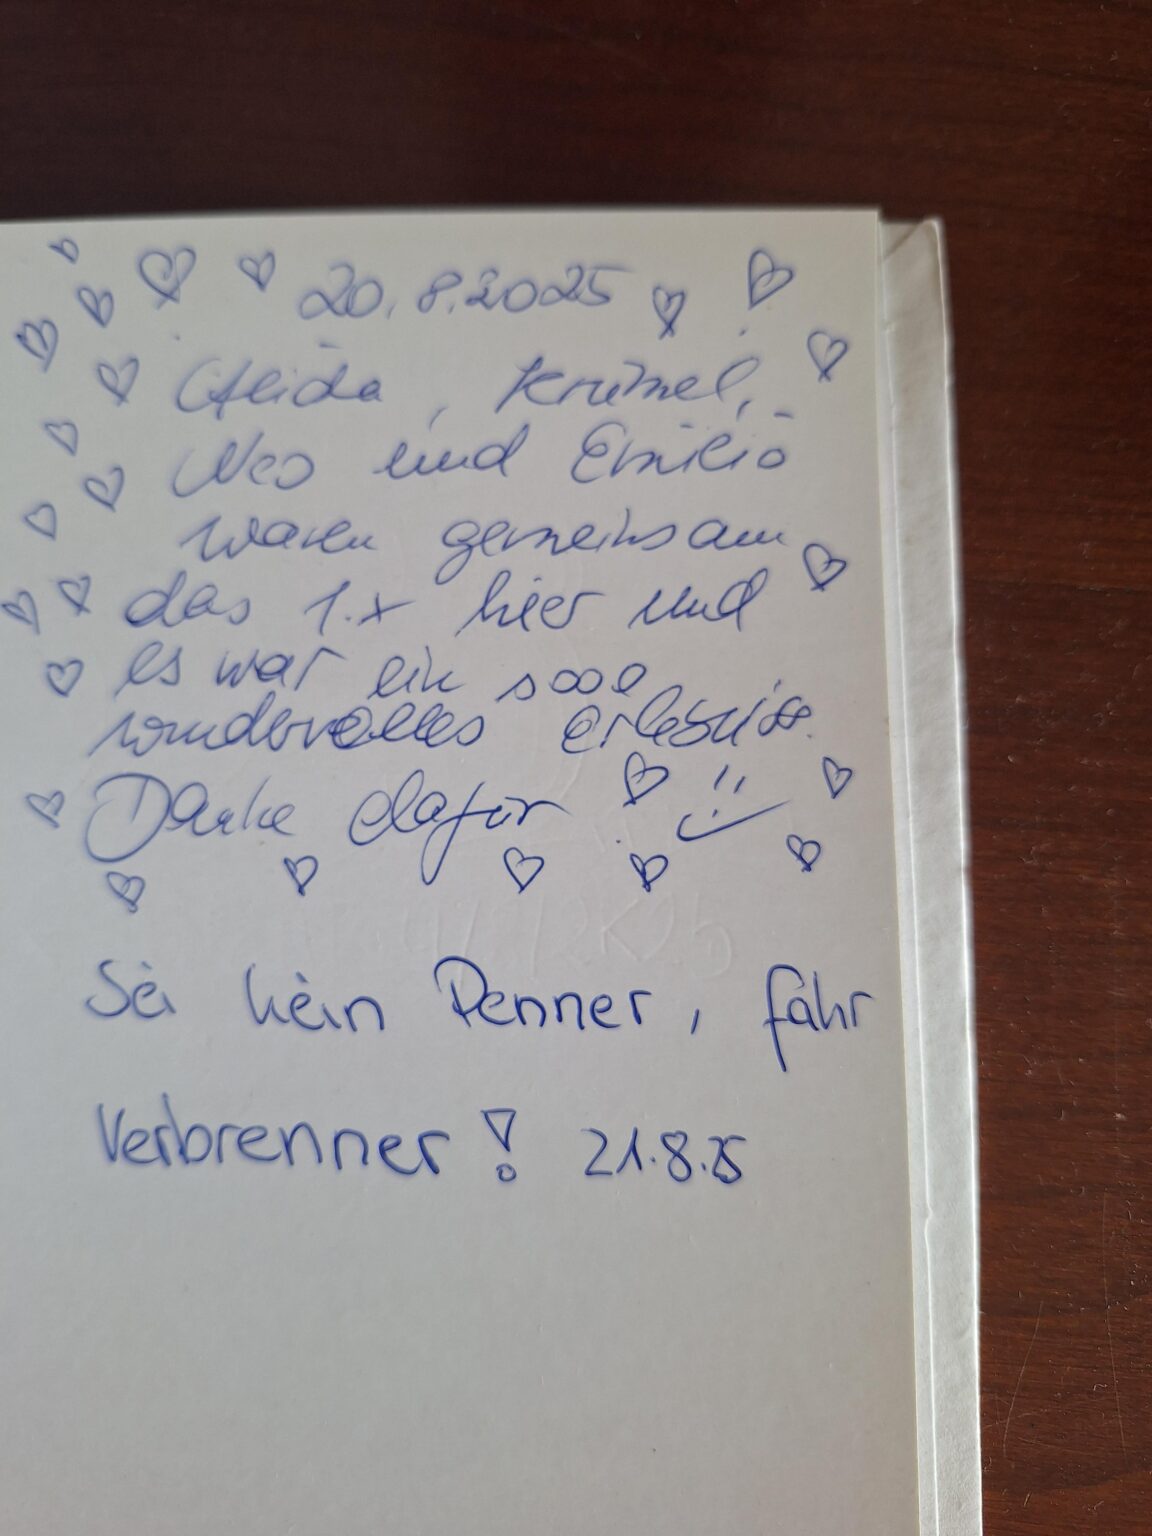 20.8.2025
Heida, Krümel,
Neo und Emilio
waren gemeinsam
das 1.x hier und
es war ein sooo
wundervolles Erlebniss.
Danke dafür!
Sei kein Penner, fahr
Verbrenner! 21.8.25